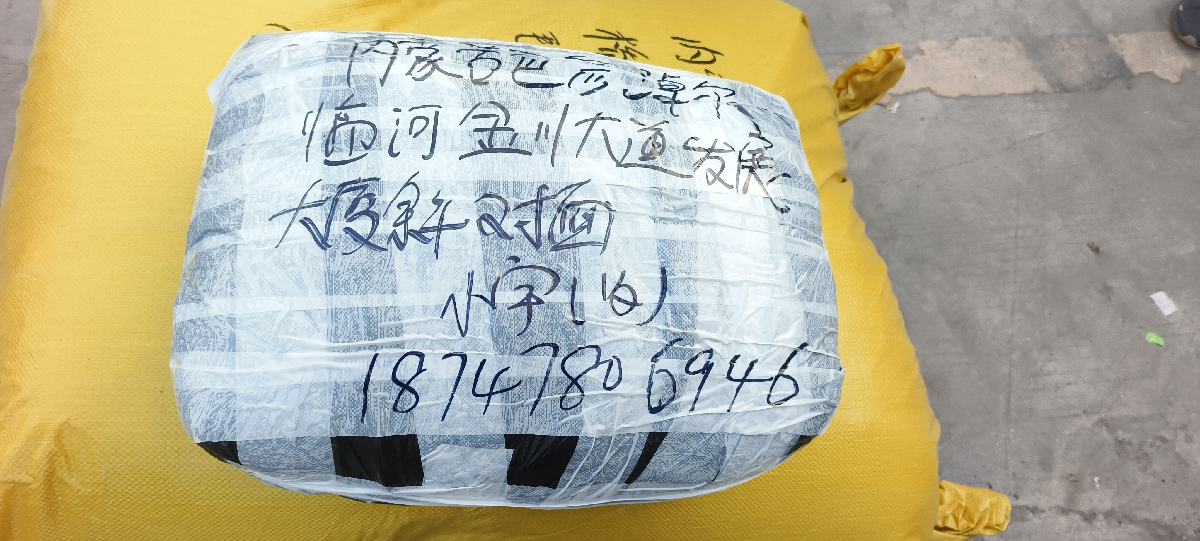 内蒙古巴彦淖尔
临河金川大道发展
大厦斜对面
小宇(收)
18747806946